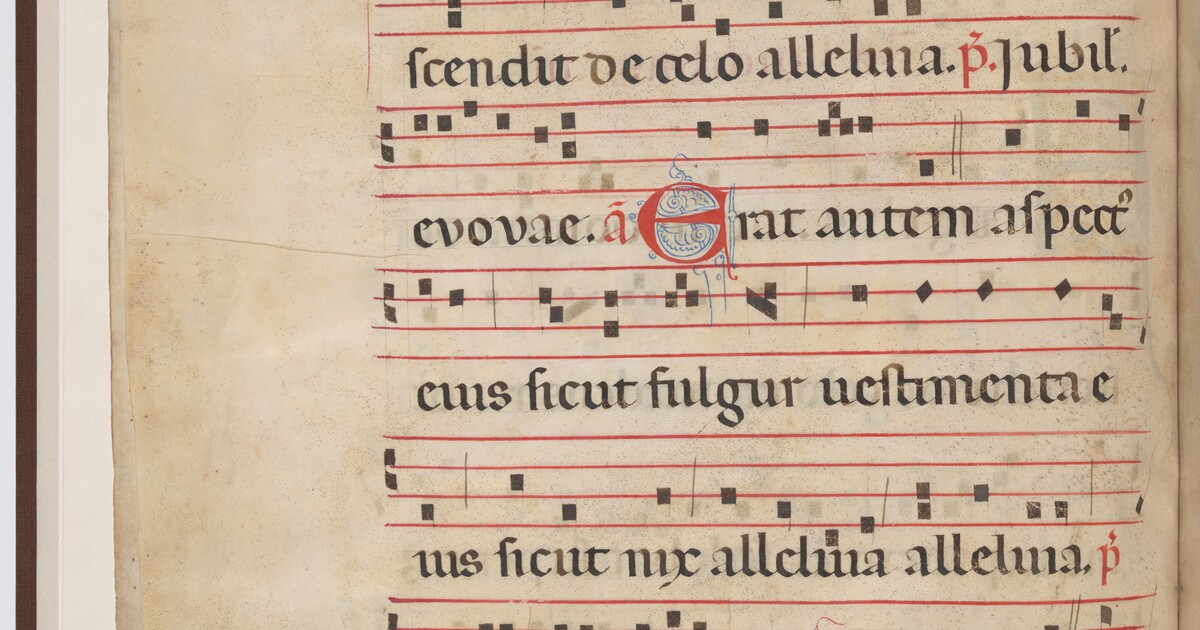 scendit de celo alleluia. p̃. Jubil̃.
evovae. ã Erat autem aspectꝰ
eius sicut fulgur uestimenta e
ius sicut nix alleluia alleluia. p̃